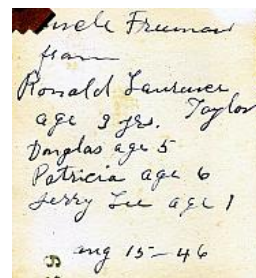 Uncle Freeman
from
Ronald Laurence
Taylor
age 3 yrs.
Douglas age 5
Patricia age 6
Jerry Lee age 1
aug 15-46